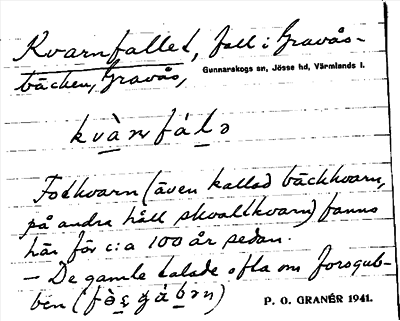 Kvarnfallet, fall i Gravås-
bäcken, Gravås,
Gunnarskogs sn, Jösse hd, Värmlands l.
kvà̠rnfá̠l̠ə
Fotkvarn (även kallad bäckkvarn,
på andra håll skvaltkvarn) fanns
här för c:a 100 år sedan.
– De gamle talade ofta om forsgub-
ben
P. O. GRANÉR 1941.